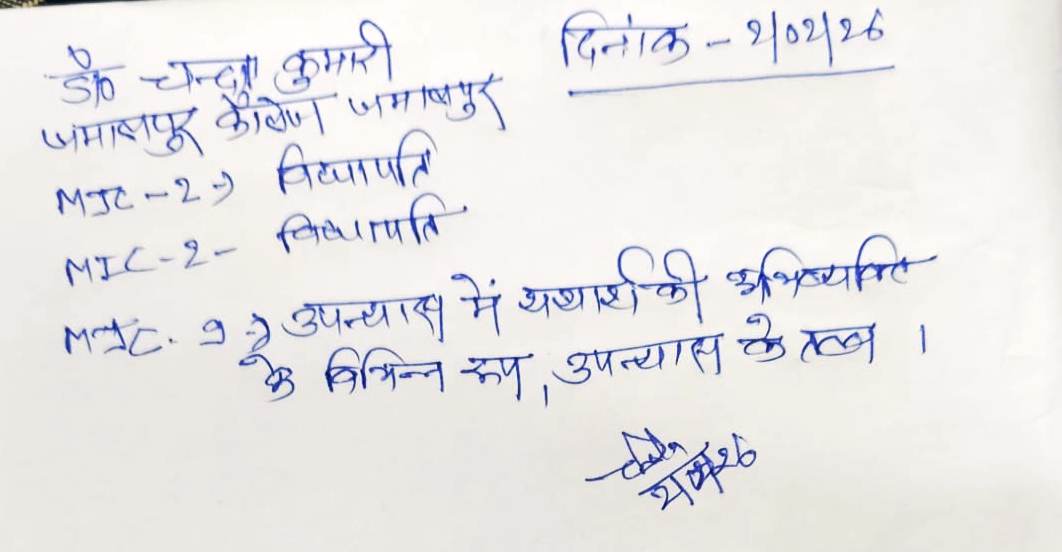 डॉ० चन्दा कुमारी
दिनांक - 2/02/26
जमालपुर कॉलेज जमालपुर
MJC-2 → विद्यापति
MIC-2 - विद्यापति
MJC. 9 → उपन्यास में यथार्थ की अभिव्यक्ति
के विभिन्न रूप, उपन्यास के तत्व ।